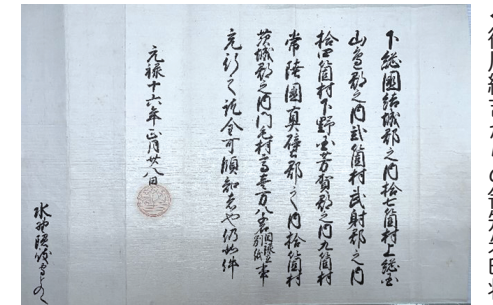 下総國結城郡之内拾七箇村上総国
山邊郡之内弐箇村武射郡之内
拾四箇村下野国芳賀郡之内九箇村
常陸國真壁郡之内拾箇村
茨城郡之内門毛村高壱万八千石目録在別紙事
充行之訖全可領知者也仍如件
元禄十六年正月廿八日
水野隠岐守とのへ